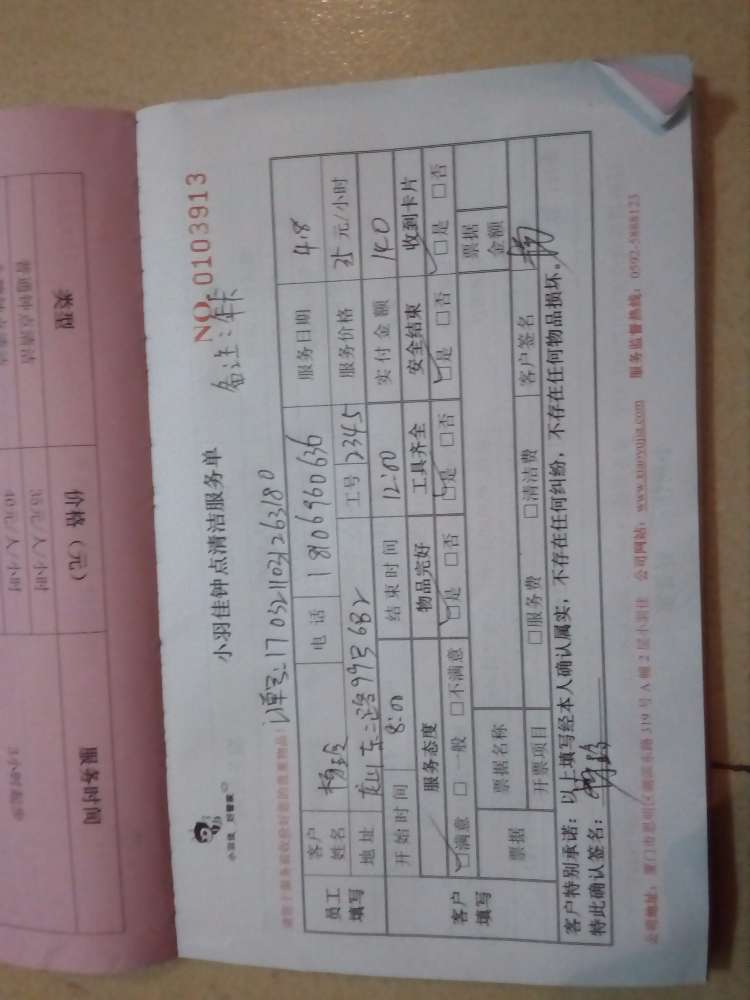 NO. 0103913
小羽佳钟点清洁服务单
备注:年卡
订单号:17032110321263180
员工填写
客户姓名 杨玲 电话 18106960636 服务日期 4.8
地址 龙山东二路99号682 工号 2345 服务价格 35 元/小时
开始时间 8:00 结束时间 12:00 实付金额 140
客户填写
服务态度 物品完好 工具齐全 安全结束 收到卡片
☑满意 □一般 □不满意 ☑是 □否 ☑是 □否 ☑是 □否 ☑是 □否
票据 票据名称 票据金额
开票项目 □服务费 □清洁费 客户签名 杨
客户特别承诺:以上填写经本人确认属实,不存在任何纠纷,不存在任何物品损坏。
特此确认签名: 杨玲
公司地址:厦门市思明区湖滨东路319号A幢2层小羽佳 公司网站:www.xiaoyujia.com 服务监督热线:0592-5888123
类型 价格(元) 服务时间
普通钟点清洁 35元/人/小时
40元/人/小时
3小时起步